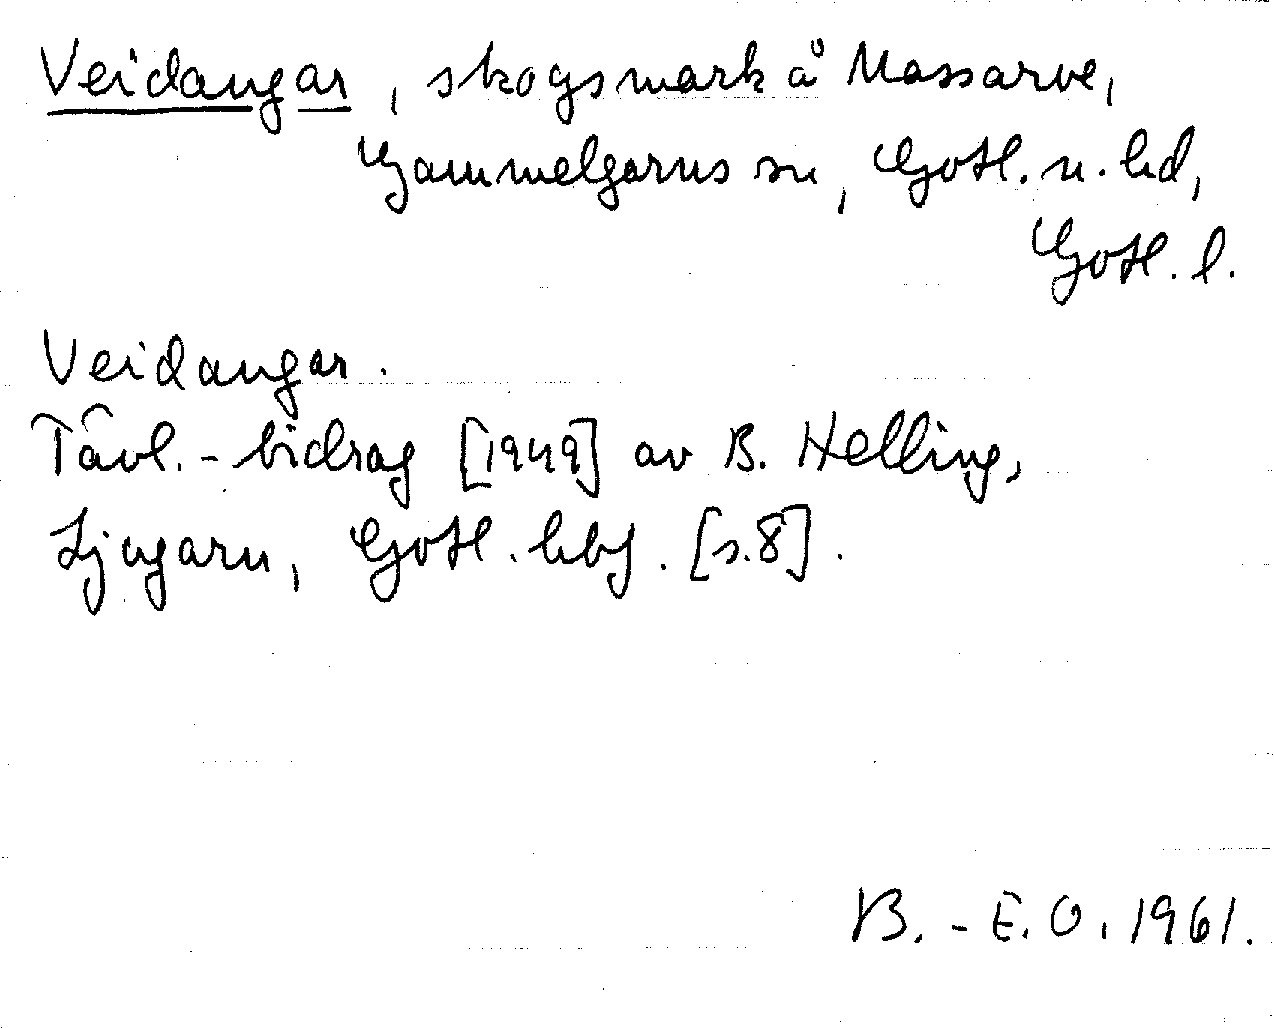 Veidangar, skogsmark å Massarve,
Gammelgarns sn, Gotl. n. hd,
Gotl. l.
Veidangar.
Tävl.-bidrag [1949] av B. Helling,
Ljugarn, Gotl. hbf. [s. 8].
B.-E. O. 1961.